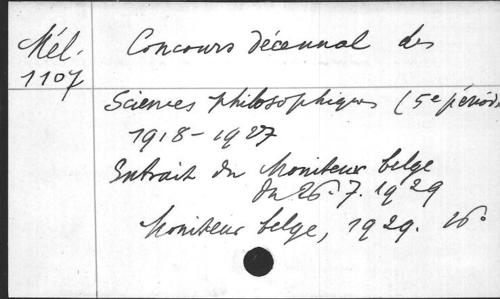 Mél.
1107
Concours décennal des
Sciences philosophiques (5e périod
1918-1927
Extrait du Moniteur belge
du 26.7.1929
Moniteur belge, 1929. 16.